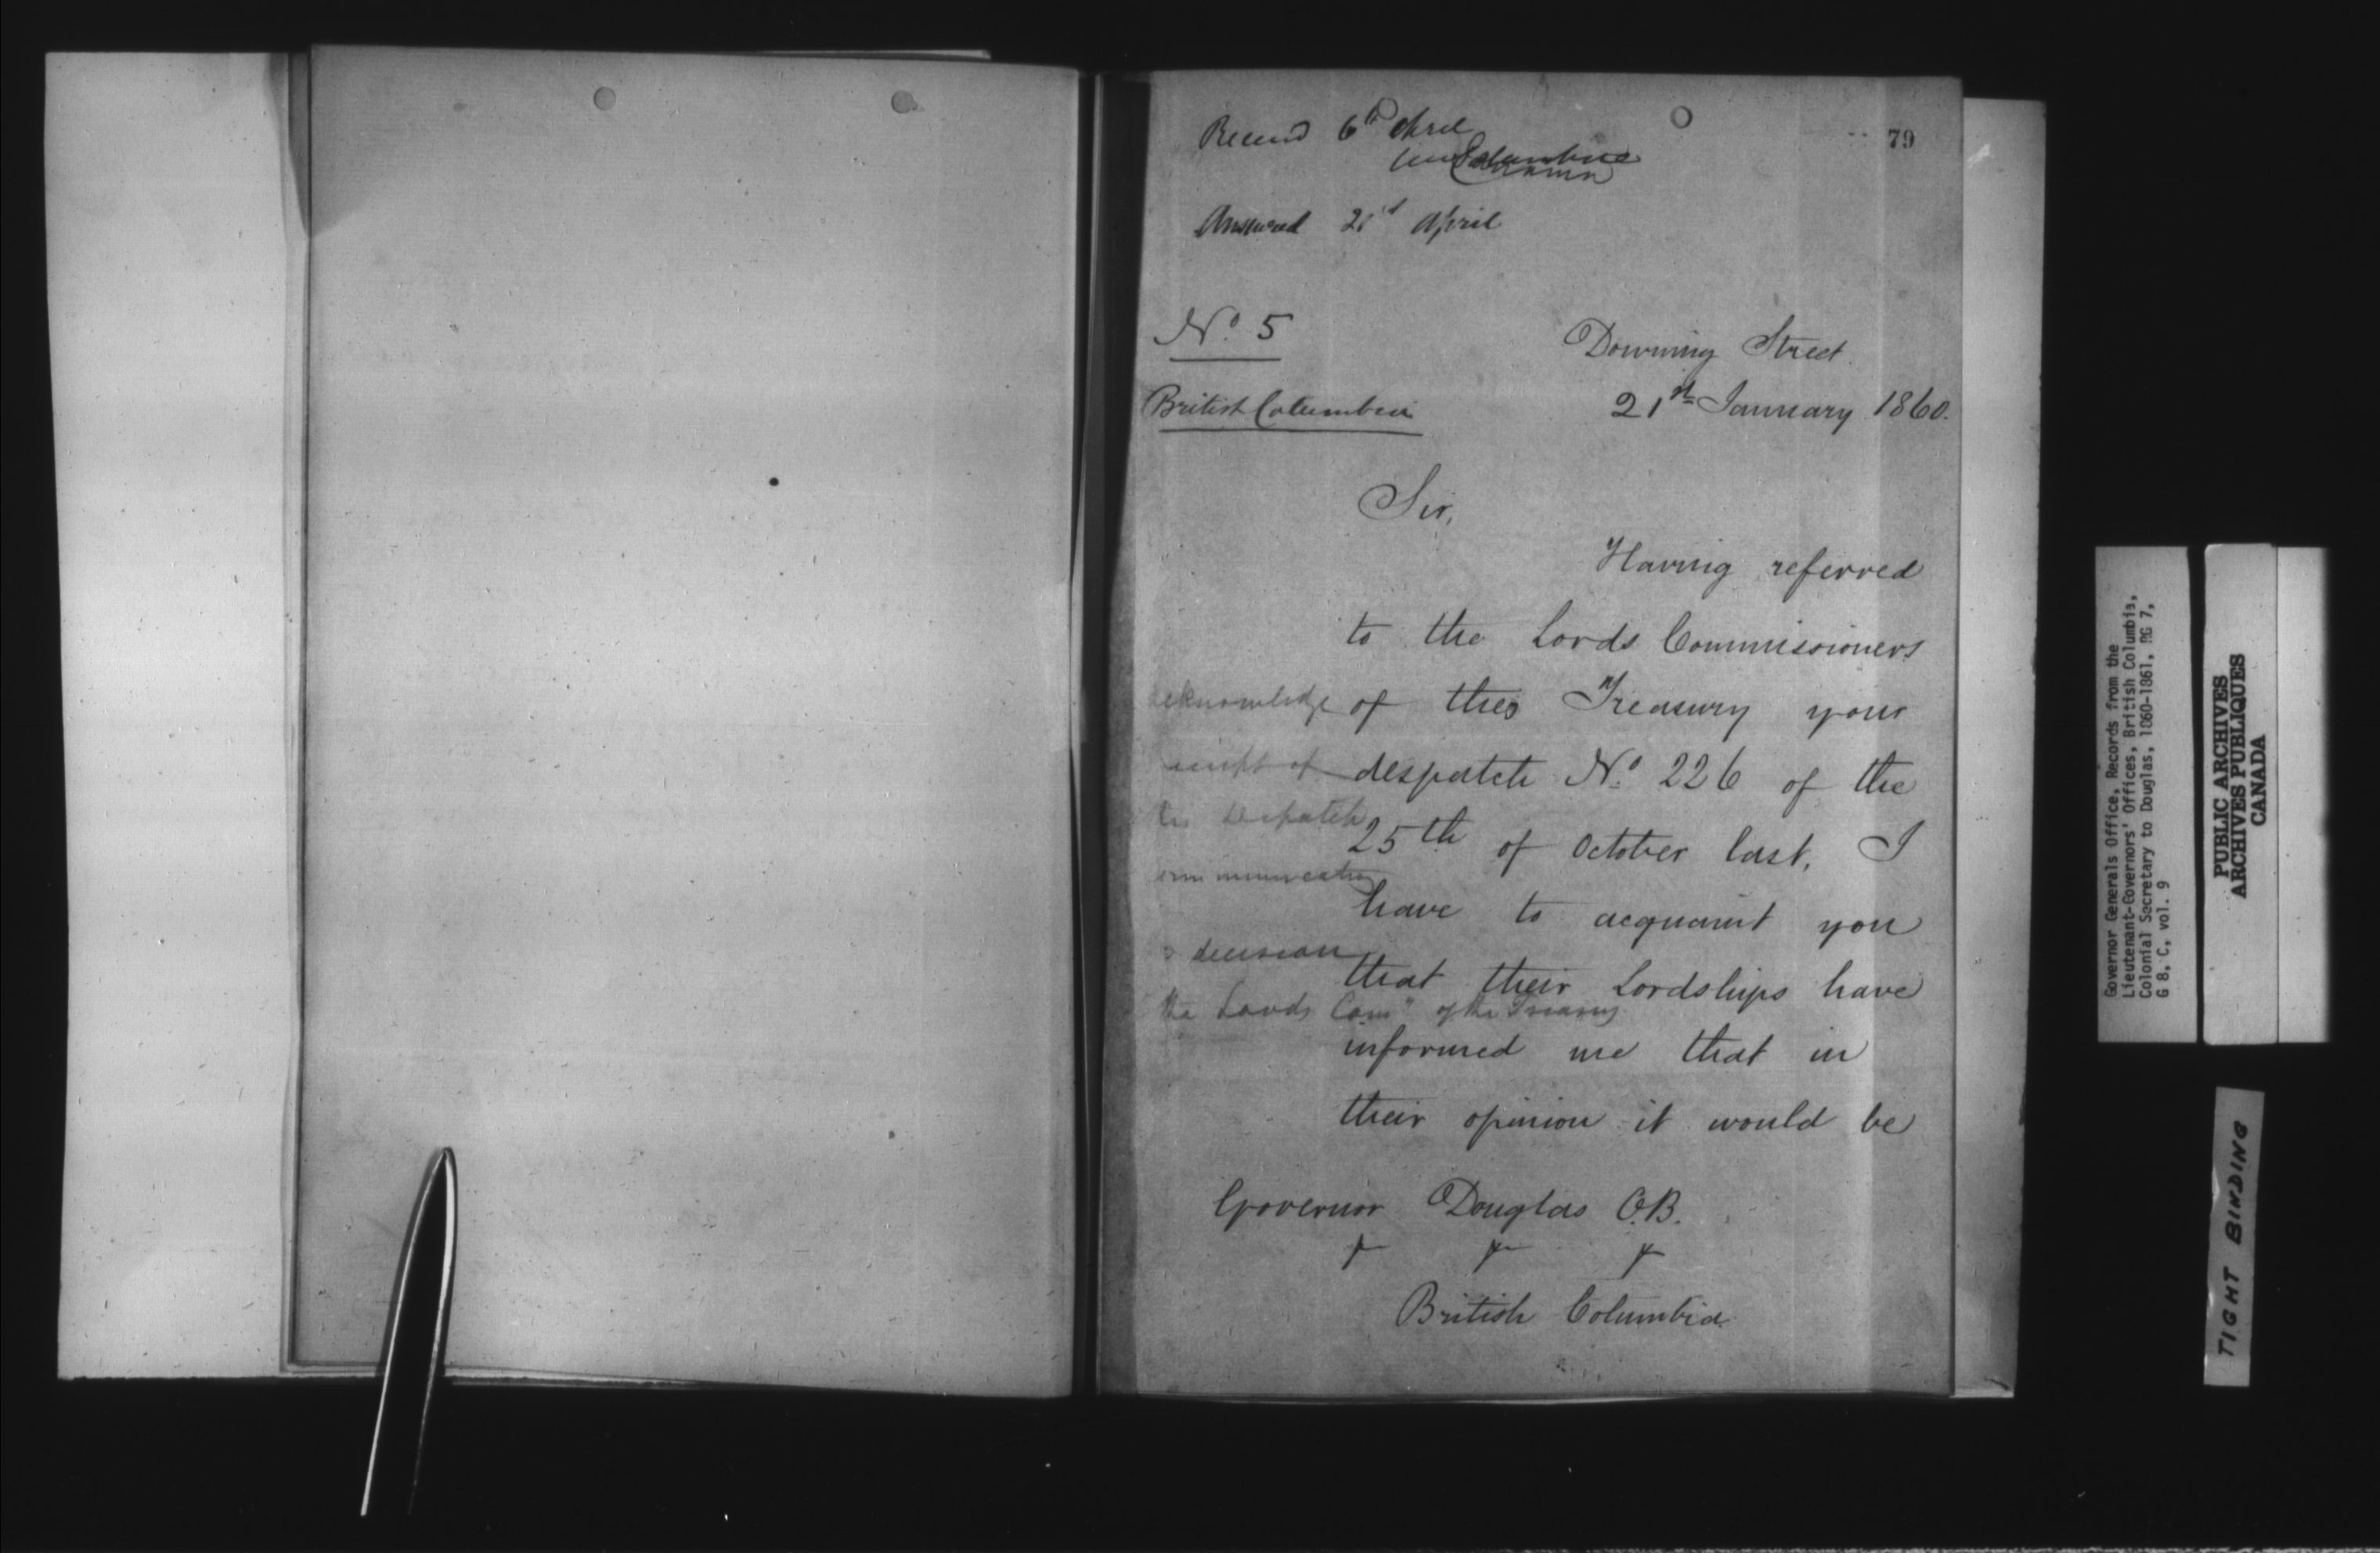 79
Received 6th April
Answered 21st April
No. 5
Downing Street.
British Columbia
21st January 1860.
Sir,
Having referred
to the Lords Commissioners
of the Treasury your
despatch No. 226 of the
25th of October last, I
have to acquaint you
that their Lordships have
informed me that in
their opinion it would be
acknowledge
receipt of
this Despatch
communicating
decision
the Lords Comrs of the Treasury
Governor Douglas C.B.
British Columbia.
Governor Generals Office, Records from the
Lieutenant-Governors' Offices, British Columbia,
Colonial Secretary to Douglas, 1860-1861, RG 7,
G 8, C, vol. 9
PUBLIC ARCHIVES
ARCHIVES PUBLIQUES
CANADA
TIGHT BINDING